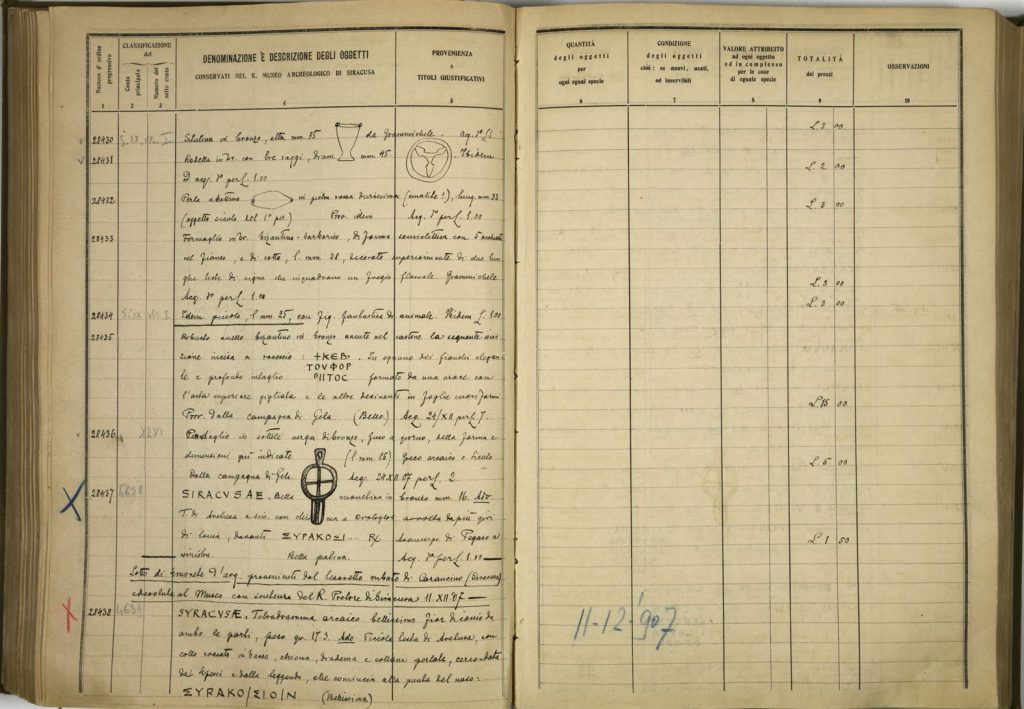 CLASSIFICAZIONE
del
Numero d'ordine progressivo
Conto principale
Numero del sotto conto
DENOMINAZIONE E DESCRIZIONE DEGLI OGGETTI
CONSERVATI NEL R. MUSEO ARCHEOLOGICO DI SIRACUSA
PROVENIENZA
e
TITOLI GIUSTIFICATIVI
1 2 3 4 5
28430 Situlina in bronzo, alta mm. 35 da Grammichele.
28431 Rotella in br. con tre raggi, diam. mm 45 Ibidem
Acq. per £. 1.00
28432 in pietra rossa durissima (ematite?), lung. mm 33
(oggetto siculo del 1° per.) Prov. idem Acq. per £. 1.00
28433 Fermaglio in br. bizantino-barbarico, di forma semiellittica con
nel fianco, e di sotto, l. mm. 38, decorato superiormente di due lun
ghe teste di cigno che inquadrano un fregio floreale. Grammichele
Acq. per £. 1.00
28434 Idem piccolo, l. mm. 25, con fig. fantastica di animale. Ibidem £. 1.00
28435 Robusto anello bizantino in bronzo avente nel castone la seguente iscri
zione incisa a rovescio: +ΚΕΒ. In ognuno dei fianchi elegan
ΤΟΥΦΟΡ
te e profondo intaglio ΟΙΙΤΟC formato da una croce con
l'asta superiore gigliata e le altre desinenti in foglie cuoriformi
Prov. dalla campagna di Gela. (Bello) Acq. 24/XII per £. 7.
28436 XLVI Pendaglio in sottile verga di bronzo, fuso a giorno, della forma e
dimensioni qui indicate (l. mm. 25) Greco arcaico o siculo
dalla campagna di Gela. Acq. 28 XII 07 per £. 2.
28437 SIRACVSAE. Bella monetina in bronzo mm. 16. Ado
T. di Aretusa a sin. con avvolta da più giri
di tenia, davanti ΣΥΡΑΚΟΣΙ.... Rx Avancorpo di Pegaso a
sinistra. Bella patina. Acq. per £ 1.00
Lotto di monete d'arg. provenienti dal
al Museo con sentenza del R. Pretore di Siracusa 11 XII 07
28438 SYRACVSÆ. Tetradramma arcaico bellissimo fior di conio da
ambo le parti, peso gr. 17.3. Ado. Piccola testa di Aretusa, con
collo, chioma, diadema e collana perlate, circondata
dai delfini e dalla leggenda, che comincia alla punta del naso:
ΣΥΡΑΚΟ/ΣΙΟ/Ν (Bellissima)
QUANTITÀ
degli oggetti
per
ogni egual specie
CONDIZIONE
degli oggetti
cioè: se nuovi, usati,
od inservibili
VALORE ATTRIBUITO
ad ogni oggetto
ed in complesso
per le cose
di eguale specie
TOTALITÀ
dei prezzi
OSSERVAZIONI
6 7 8 9 10
L. 3 00
L. 2 00
L. 3 00
L. 3 00
L. 3 00
L. 15 00
L. 5 00
L. 1 50
11-12-907